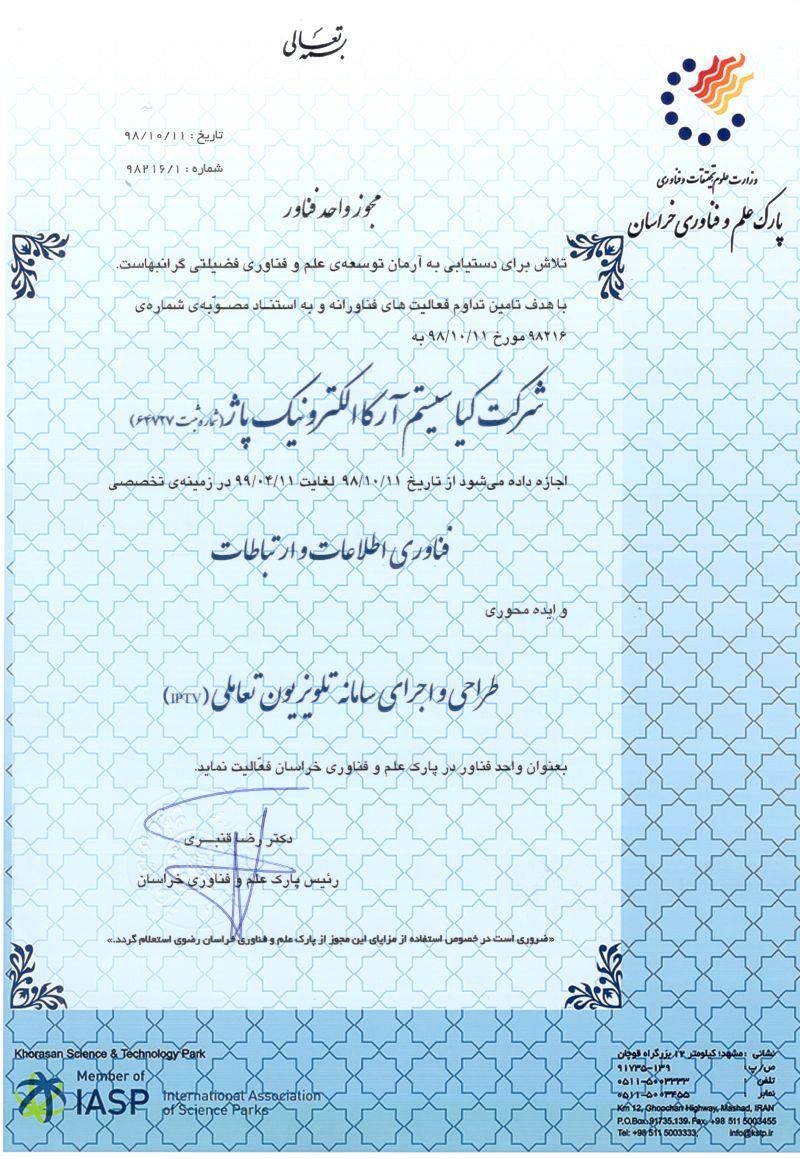 بسمه تعالی
تاریخ : ۹۸/۱۰/۱۱
شماره : ۹۸۲۱۶/۱
وزارت علوم تحقیقات و فناوری
پارک علم و فناوری خراسان
مجوز واحد فناور
تلاش برای دستیابی به آرمان توسعه‌ی علم و فناوری فضیلتی گرانبهاست.
با هدف تامین تداوم فعالیت های فناورانه و به استناد مصوّبه‌ی شماره‌ی
۹۸۲۱۶ مورخ ۹۸/۱۰/۱۱ به
شرکت کیا سیستم آرکا الکترونیک پاژ (شماره ثبت ۶۴۷۲۷)
اجازه داده می‌شود از تاریخ ۹۸/۱۰/۱۱ لغایت ۹۹/۰۴/۱۱ در زمینه‌ی تخصصی
فناوری اطلاعات و ارتباطات
و ایده محوری
طراحی و اجرای سامانه تلویزیون تعاملی (IPTV)
بعنوان واحد فناور در پارک علم و فناوری خراسان فعّالیت نماید.
دکتر رضا قنبــری
رئیس پارک علم و فناوری خراسان
«ضروری است در خصوص استفاده از مزایای این مجوز از پارک علم و فناوری خراسان رضوی استعلام گردد.»
Khorasan Science & Technology Park
Member of
IASP International Association
of Science Parks
نشانی : مشهد؛ کیلومتر ۱۲ بزرگراه قوچان
ص/پ: ۹۱۷۳۵-۱۳۹
تلفن : ۰۵۱۱-۵۰۰۳۳۳۳
نمابر : ۰۵۱۱-۵۰۰۳۴۵۵
Km 12, Ghoochan Highway, Mashad, IRAN
P.O.Box. 91735.139. Fax. +98 511 5003455
Tel: +98 511 5003333; info@kstp.ir